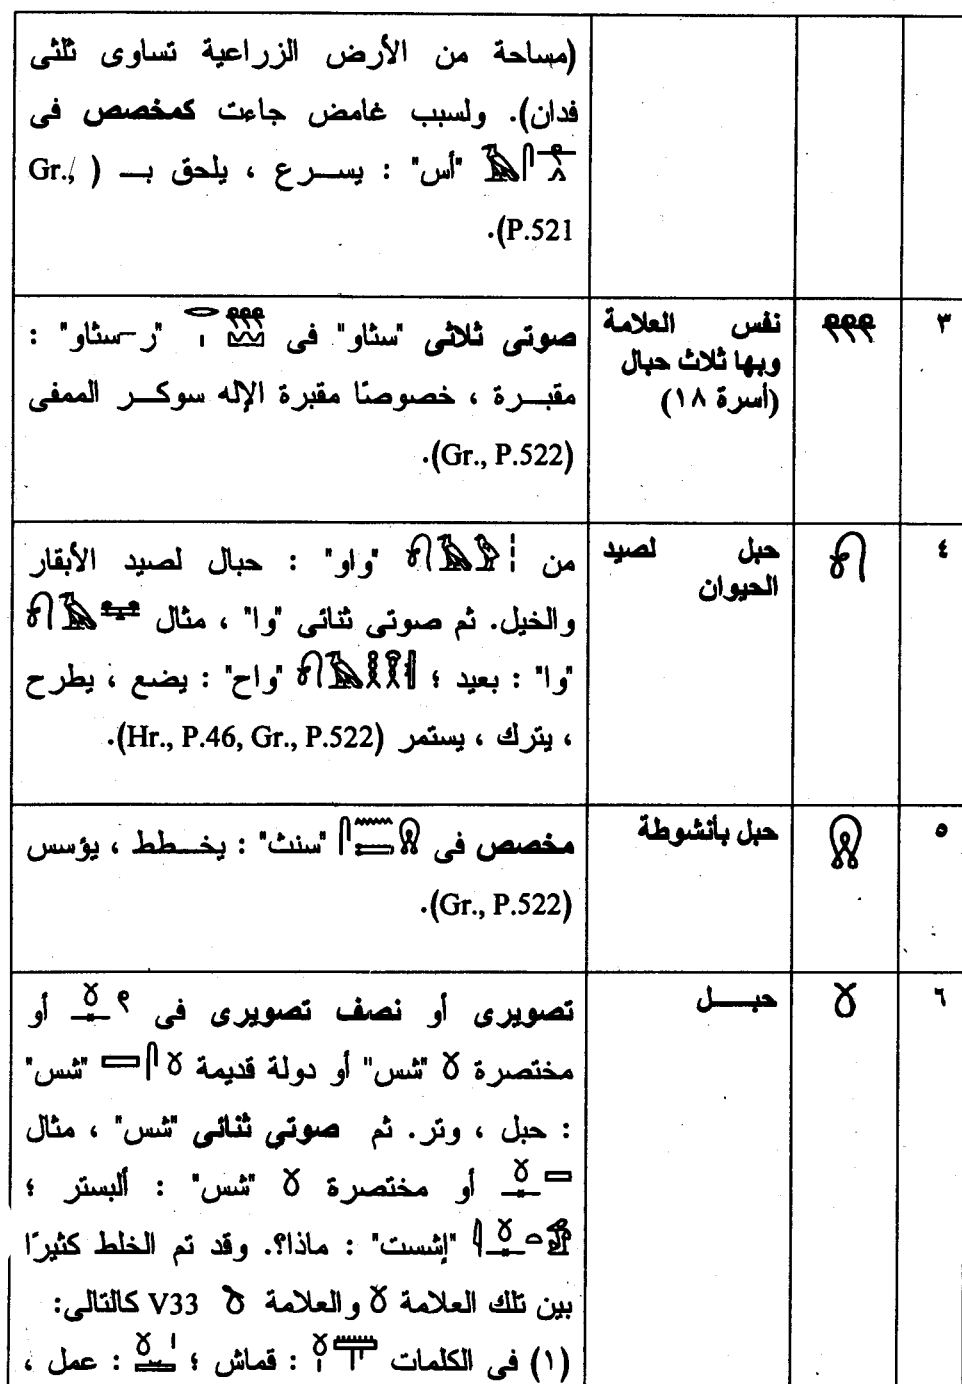 (مساحة من الأرض الزراعية تساوى ثلثى
فدان). ولسبب غامض جاءت كمخصص فى
"أس" : يسرع ، يلحق بـ ( Gr.,
P.521).
٣
نفس العلامة
وبها ثلاث حبال
(أسرة ١٨)
صوتى ثلاثى "سثاو" فى "ر-سثاو" :
مقبرة ، خصوصًا مقبرة الإله سوكر الممفى
(Gr., P.522).
٤
حبل لصيد
الحيوان
من "واو" : حبال لصيد الأبقار
والخيل. ثم صوتى ثنائى "وا" ، مثال
"وا" : بعيد ؛ "واح" : يضع ، يطرح
، يترك ، يستمر (Hr., P.46, Gr., P.522).
٥
حبل بأنشوطة
مخصص فى "سنث" : يخطط ، يؤسس
(Gr., P.522).
٦
حبل
تصويرى أو نصف تصويرى فى أو
مختصرة "شس" أو دولة قديمة "شس"
: حبل ، وتر. ثم صوتى ثنائى "شس" ، مثال
أو مختصرة "شس" : ألبستر ؛
"إشست" : ماذا؟. وقد تم الخلط كثيرًا
بين تلك العلامة والعلامة V33 كالتالى:
(١) فى الكلمات : قماش ؛ : عمل ،